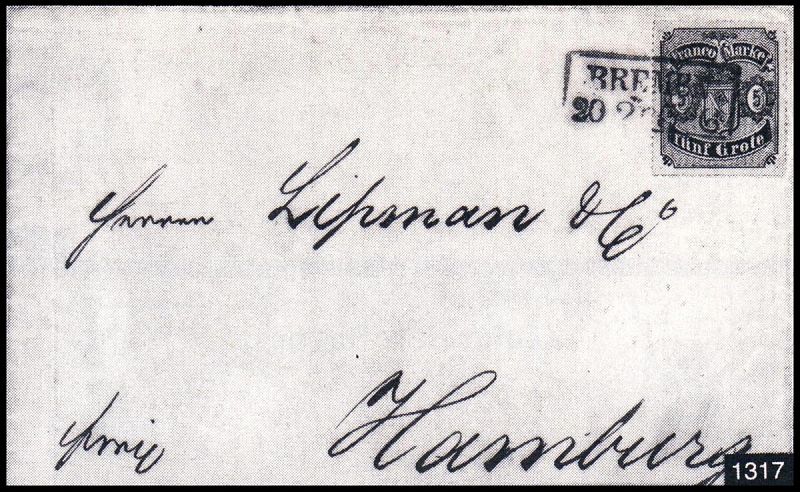 Franco Marke
BREMEN
5 5
20
Fünf Grote
Herren Lipman & Co
franco
Hamburg
1317